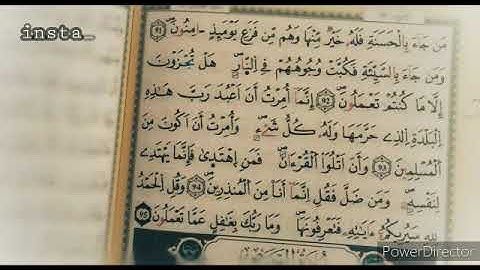 insta_
مَن جَآءَ بِالْحَسَنَةِ فَلَهُۥ خَيْرٌ مِّنْهَا وَهُم مِّن فَزَعِ يَوْمَئِذٍ ءَامِنُونَ 91
وَمَن جَآءَ بِالسَّيِّئَةِ فَكُبَّتْ وُجُوهُهُمْ فِے اِ۬لنّ۪ارِۖ هَلْ تُجْزَوْنَ
إِلَّا مَا كُنتُمْ تَعْمَلُونَۖ 92 إِنَّمَآ أُمِرْتُ أَنَ اَعْبُدَ رَبَّ هَٰذِهِ
اِ۬لْبَلْدَةِ اِ۬لذِے حَرَّمَهَا وَلَهُۥ كُلُّ شَےْءٖۖ وَأُمِرْتُ أَنَ اَكُونَ مِنَ
اَ۬لْمُسْلِمِينَ 93 وَأَنَ اَتْلُوَاْ اُ۬لْقُرْءَانَۖ فَمَنِ اِ۪هْتَد۪ىٰ فَإِنَّمَا يَهْتَدِے
لِنَفْسِهِۦۖ وَمَن ضَلَّ فَقُلِ اِنَّمَآ أَنَا مِنَ اَ۬لْمُنذِرِينَۖ 94 وَقُلِ اِ۬لْحَمْدُ
لِلهِ سَيُرِيكُمُۥٓ ءَايَٰتِهِۦ فَتَعْرِفُونَهَاۖ وَمَا رَبُّكَ بِغَٰفِلٍ عَمَّا تَعْمَلُونَۖ 95
PowerDirector